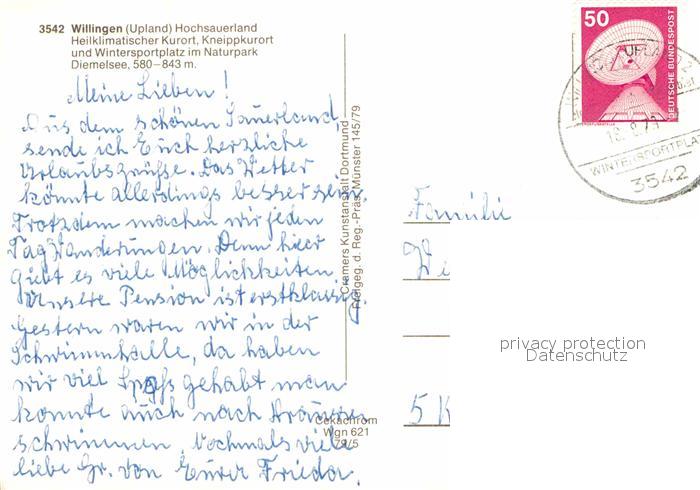 3542 Willingen (Upland) Hochsauerland
Heilklimatischer Kurort, Kneippkurort
und Wintersportplatz im Naturpark
Diemelsee, 580–843 m.
Meine Lieben!
Aus dem schönen Sauerland,
sende ich Euch herzliche
Urlaubsgrüße. Das Wetter
könnte allerdings besser sein.
Trotzdem machen wir jeden
Tag Wanderungen. Denn hier
giebt es viele Möglichkeiten.
Unsere Pension ist erstklassig.
Gestern waren wir in der
Schwimmhalle, da haben
wir viel Spaß gehabt man
konnte auch nach draussen
schwimmen. Nochmals viele
liebe Gr. von Eurer Frieda.
Cramers Kunstanstalt Dortmund
Freigeg. d. Reg.-Präs. Münster 145/79
Cekachrom
Wgn 621
79/5
50
DEUTSCHE BUNDESPOST
WINTERSPORTPLATZ
3542
Familie
We
5 K
privacy protection
Datenschutz